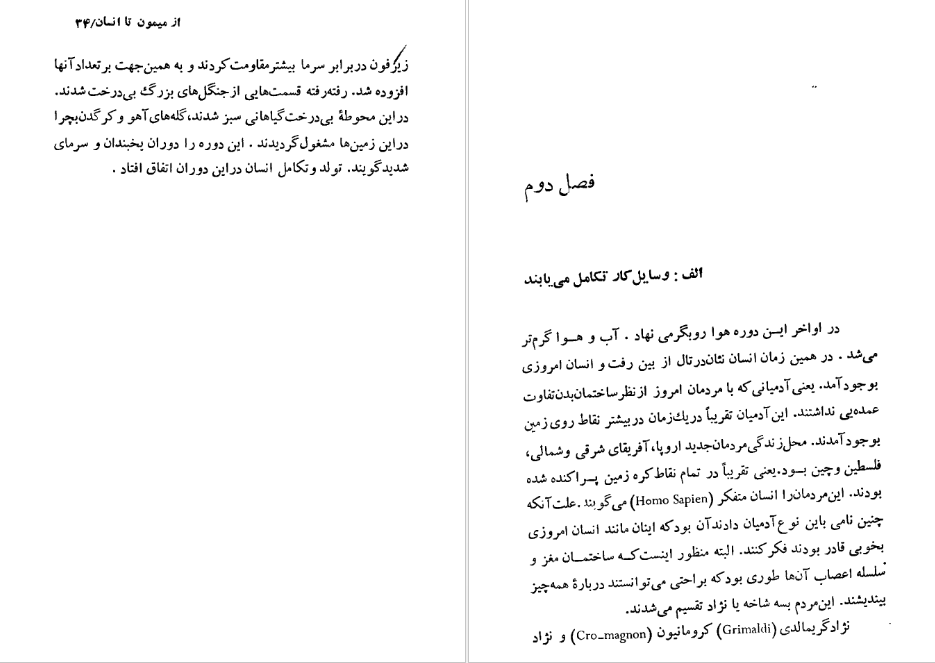 از میمون تا انسان/۳۴
زیزفون دربرابر سرما بیشترمقاومت‌کردند و به همین‌جهت برتعدادآنها
افزوده شد. رفته‌رفته قسمت‌هایی ازجنگل‌های بزرگ بی‌درخت شدند.
دراین محوطهٔ بی‌درخت‌گیاهانی سبز شدند،گله‌های‌آهو وکرگدن‌بچرا
دراین زمین‌ها مشغول‌گردیدند . این دوره را دوران یخبندان و سرمای
شدیدگویند. تولد وتکامل انسان دراین دوران اتفاق افتاد .
فصل دوم
الف : وسایل‌کار تکامل می‌یابند
در اواخر ایـن دوره هوا روبگرمی نهاد . آب و هـوا گرم‌تر
می‌شد . در همین زمان انسان نئان‌درتال از بین رفت و انسان امروزی
بوجودآمد. یعنی‌آدمیانی‌که با مردمان امروز ازنظرساختمان‌بدن‌تفاوت
عمده‌یی نداشتند. این‌آدمیان تقریباً دریك‌زمان دربیشتر نقاط روی‌زمین
بوجودآمدند. محل‌زندگی‌مردمان‌جدید اروپا،آفریقای شرقی وشمالی،
فلسطین وچین بـود.یعنی تقریباً در تمام نقاط‌کره زمین پـراکنده شده
بودند. این‌مردمان‌را انسان متفکر (Homo Sapien) می‌گویند .علت‌آنکه
چنین نامی باین نوع‌آدمیان دادندآن بودکه اینان مانند انسان امروزی
بخوبی قادر بودند فکرکنند. البته منظور اینست‌کـه ساختمـان مغز و
سلسله اعصاب آن‌ها طوری بودکه براحتی می‌توانستند دربارهٔ همه‌چیز
بیندیشند. این‌مردم بسه شاخه یا نژاد تقسیم می‌شدند.
نژادگریمالدی (Grimaldi) کرومانیون (Cro_magnon) و نژاد